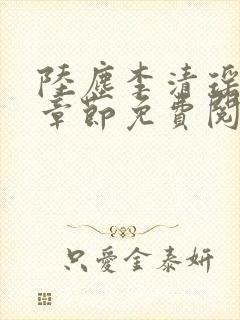 陸塵李清瑤
章節免費閱
只愛金泰妍